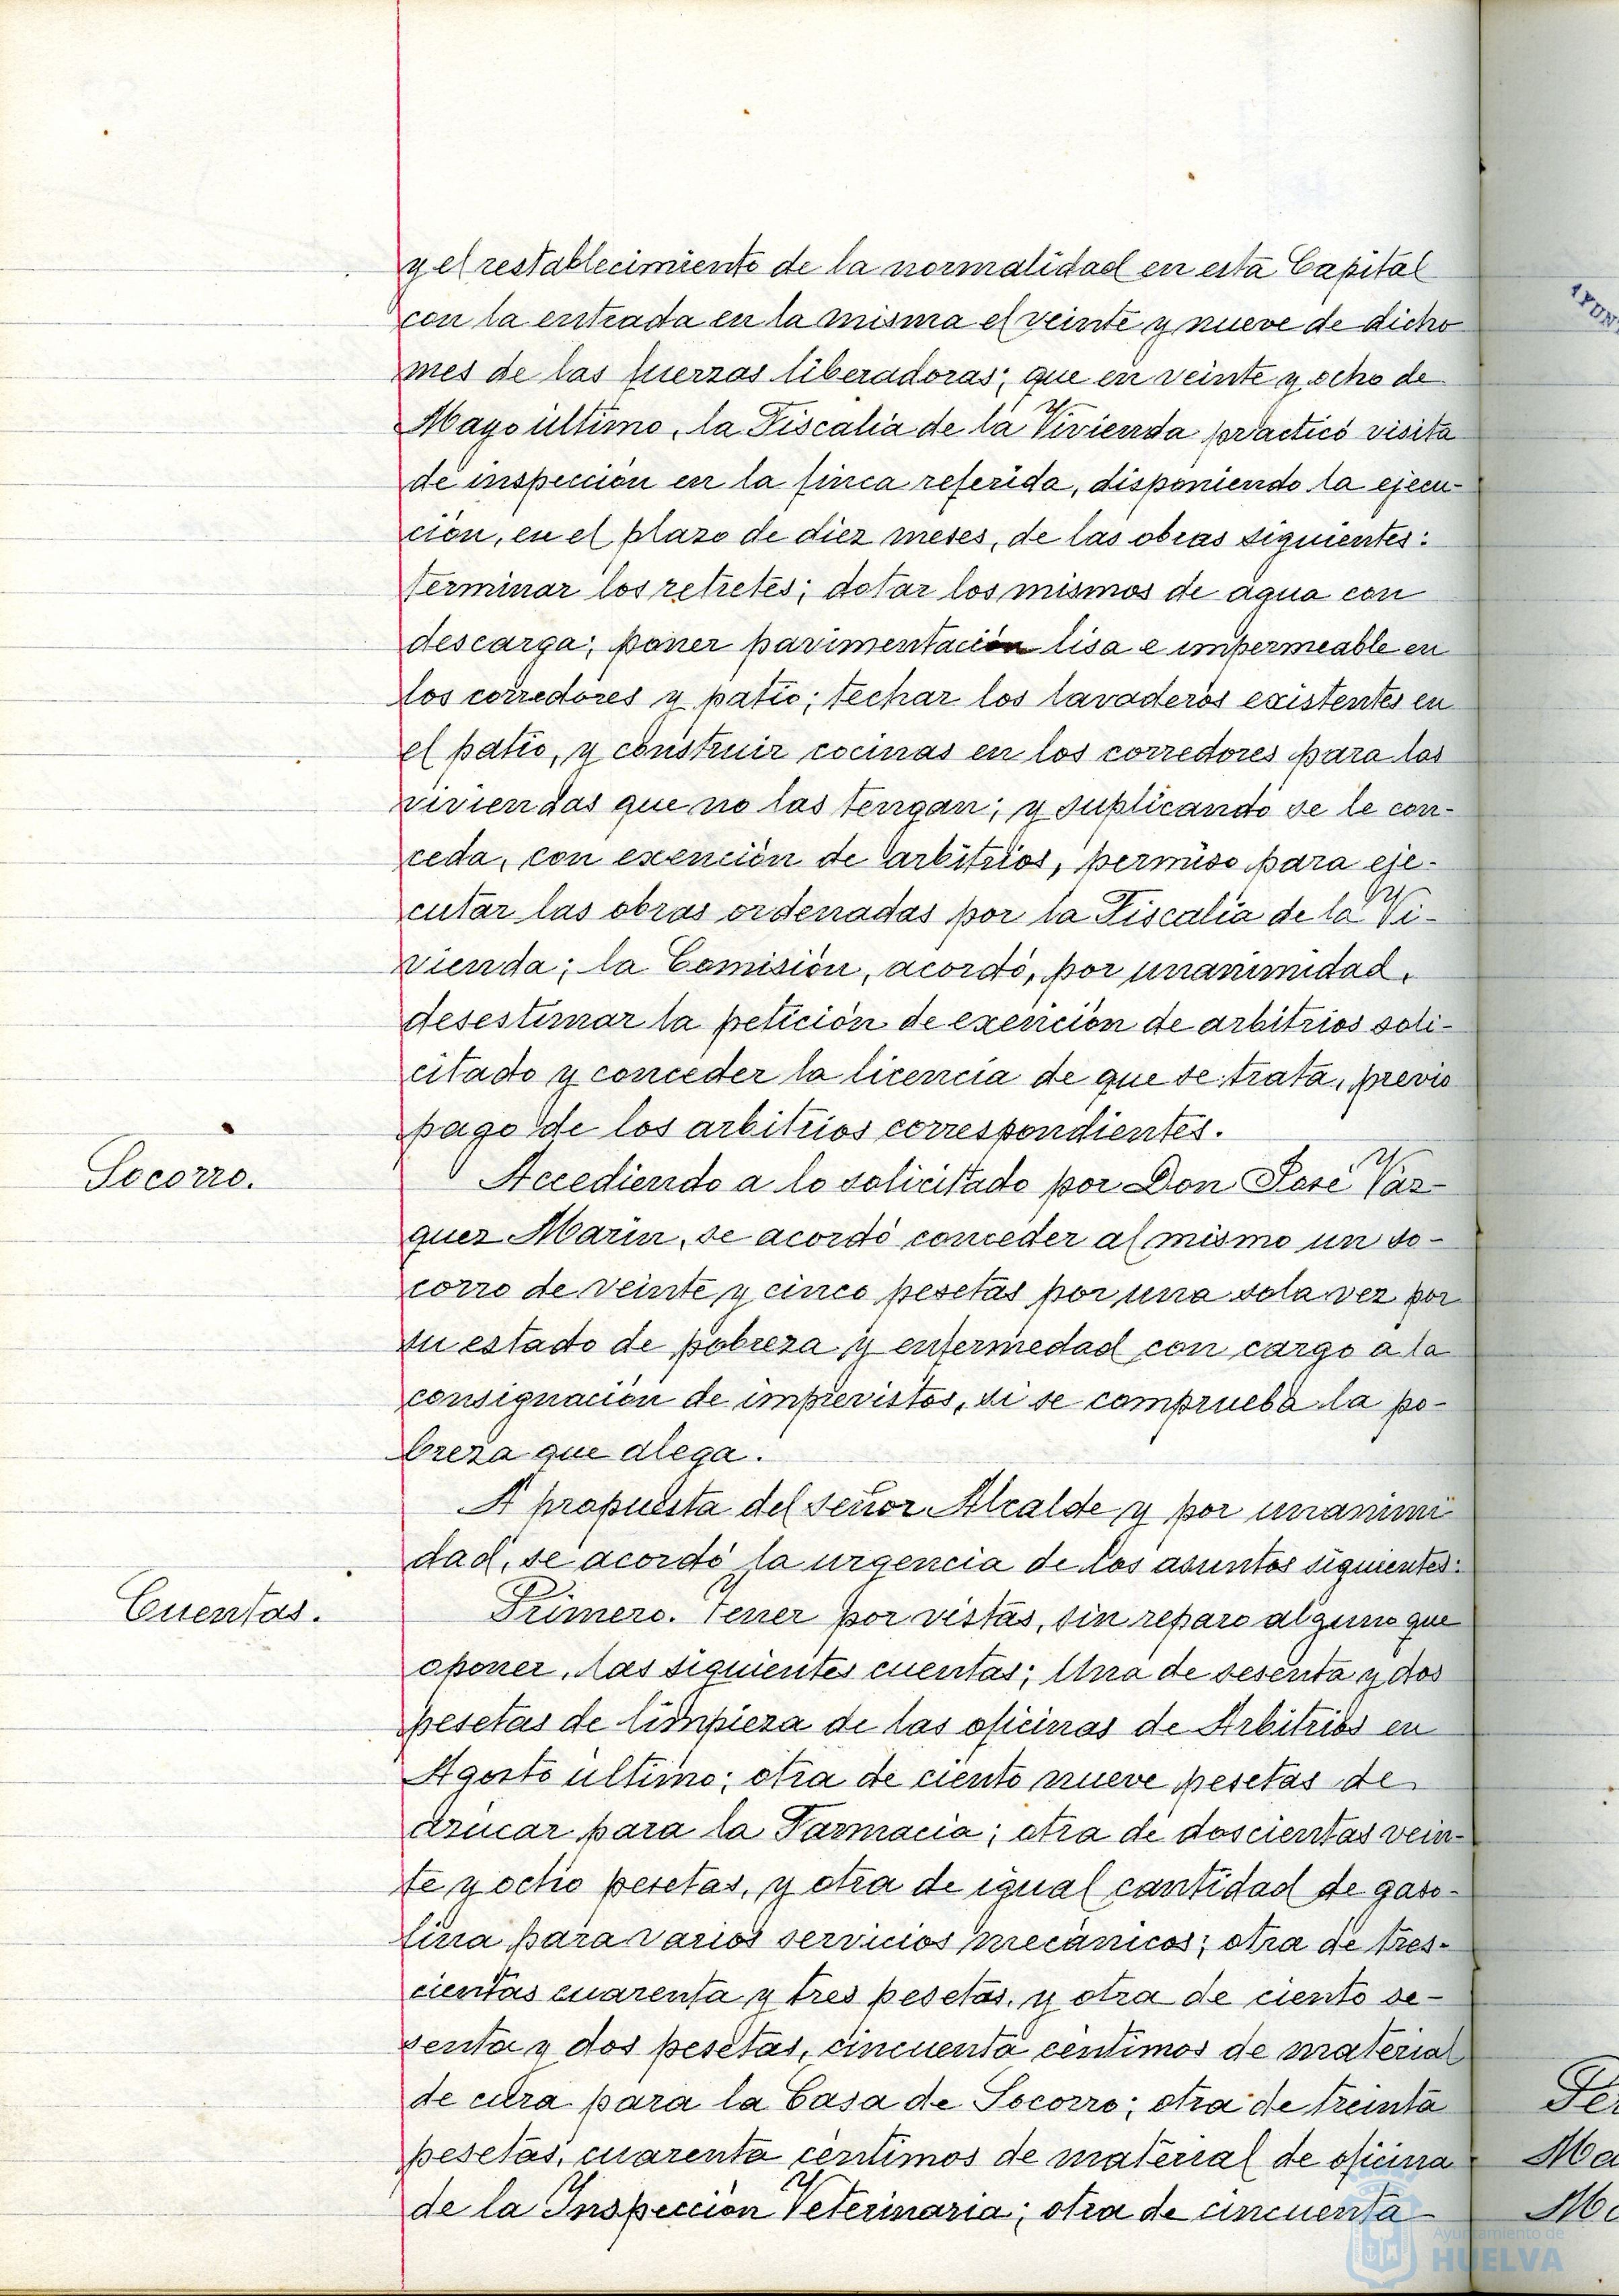 y el restablecimiento de la normalidad en esta Capital
con la entrada en la misma el veinte y nueve de dicho
mes de las fuerzas liberadoras; que en veinte y ocho de
Mayo último, la Fiscalía de la Vivienda practicó visita
de inspección en la finca referida, disponiendo la ejecu-
ción, en el plazo de diez meses, de las obras siguientes:
terminar los retretes; dotar los mismos de agua con
descarga; poner pavimentación lisa e impermeable en
los corredores y patio; techar los lavaderos existentes en
el patio, y construir cocinas en los corredores para las
viviendas que no las tengan; y suplicando se le con-
ceda, con exención de arbitrios, permiso para eje-
cutar las obras ordenadas por la Fiscalía de la Vi-
vienda; la Comisión, acordó, por unanimidad,
desestimar la petición de exención de arbitrios soli-
citado y conceder la licencia de que se trata, previo
pago de los arbitrios correspondientes.
Socorro.
Accediendo a lo solicitado por Don José Váz-
quez Marín, se acordó conceder al mismo un so-
corro de veinte y cinco pesetas por una sola vez por
su estado de pobreza y enfermedad con cargo a la
consignación de imprevistos, si se comprueba la po-
breza que alega.
A propuesta del señor Alcalde y por unanimi
dad, se acordó la urgencia de los asuntos siguientes:
Cuentas.
Primero. Tener por vistas, sin reparo alguno que
oponer, las siguientes cuentas; Una de sesenta y dos
pesetas de limpieza de las oficinas de Arbitrios en
Agosto último; otra de ciento nueve pesetas de
azúcar para la Farmacia; otra de doscientas vein-
te y ocho pesetas, y otra de igual cantidad de gaso-
lina para varios servicios mecánicos; otra de tres-
cientas cuarenta y tres pesetas, y otra de ciento se-
senta y dos pesetas, cincuenta céntimos de material
de cura para la Casa de Socorro; otra de treinta
pesetas, cuarenta céntimos de material de oficina
de la Inspección Veterinaria; otra de cincuenta
Ayuntamiento de
HUELVA